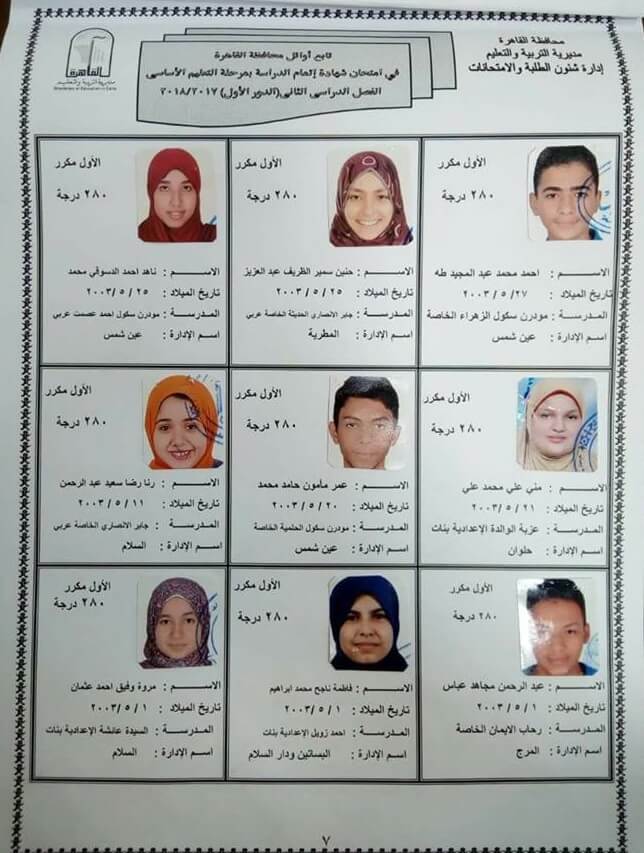 محافظة القاهرة
مديرية التربية والتعليم
إدارة شئون الطلبة والامتحانات
تابع أوائل محافظة القاهرة
في امتحان شهادة إتمام الدراسة بمرحلة التعليم الأساسى
الفصل الدراسى الثانى (الدور الأول) ٢٠١٨/٢٠١٧
القاهرة
مديرية التربية والتعليم
الأول مكرر
٢٨٠ درجة
الاسم : احمد محمد عبد المجيد طه
تاريخ الميلاد : ٢٧ / ٥ / ٢٠٠٣
المدرسة : مودرن سكول الزهراء الخاصة
اسم الإدارة : عين شمس
الأول مكرر
٢٨٠ درجة
الاسم : حنين سمير الظريف عبد العزيز
تاريخ الميلاد : ٢٥ / ٥ / ٢٠٠٣
المدرسة : جابر الانصاري الحديثة الخاصة عربي
اسم الإدارة : المطرية
الأول مكرر
٢٨٠ درجة
الاسم : ناهد احمد الدسوقي محمد
تاريخ الميلاد : ٢٥ / ٥ / ٢٠٠٣
المدرسة : مودرن سكول احمد عصمت عربي
اسم الإدارة : عين شمس
الأول مكرر
٢٨٠ درجة
الاسم : مني علي محمد علي
تاريخ الميلاد : ٢١ / ٥ / ٢٠٠٣
المدرسة : عزبة الوالدة الإعدادية بنات
اسم الإدارة : حلوان
الأول مكرر
٢٨٠ درجة
الاسم : عمر مأمون حامد محمد
تاريخ الميلاد : ٢٠ / ٥ / ٢٠٠٣
المدرسة : مودرن سكول الحلمية الخاصة
اسم الإدارة : عين شمس
الأول مكرر
٢٨٠ درجة
الاسم : رنا رضا سعيد عبد الرحمن
تاريخ الميلاد : ١١ / ٥ / ٢٠٠٣
المدرسة : جابر الانصاري الخاصة عربي
اسم الإدارة : السلام
الأول مكرر
٢٨٠ درجة
الاسم : عبد الرحمن مجاهد عباس
تاريخ الميلاد : ١ / ٥ / ٢٠٠٣
المدرسة : رحاب الايمان الخاصة
اسم الإدارة : المرج
الأول مكرر
٢٨٠ درجة
الاسم : فاطمة ناجح محمد ابراهيم
تاريخ الميلاد : ١ / ٥ / ٢٠٠٣
المدرسة : احمد زويل الإعدادية بنات
اسم الإدارة : البساتين ودار السلام
الأول مكرر
٢٨٠ درجة
الاسم : مروة وفيق احمد عثمان
تاريخ الميلاد : ١ / ٥ / ٢٠٠٣
المدرسة : السيدة عائشة الإعدادية بنات
اسم الإدارة : السلام
٧